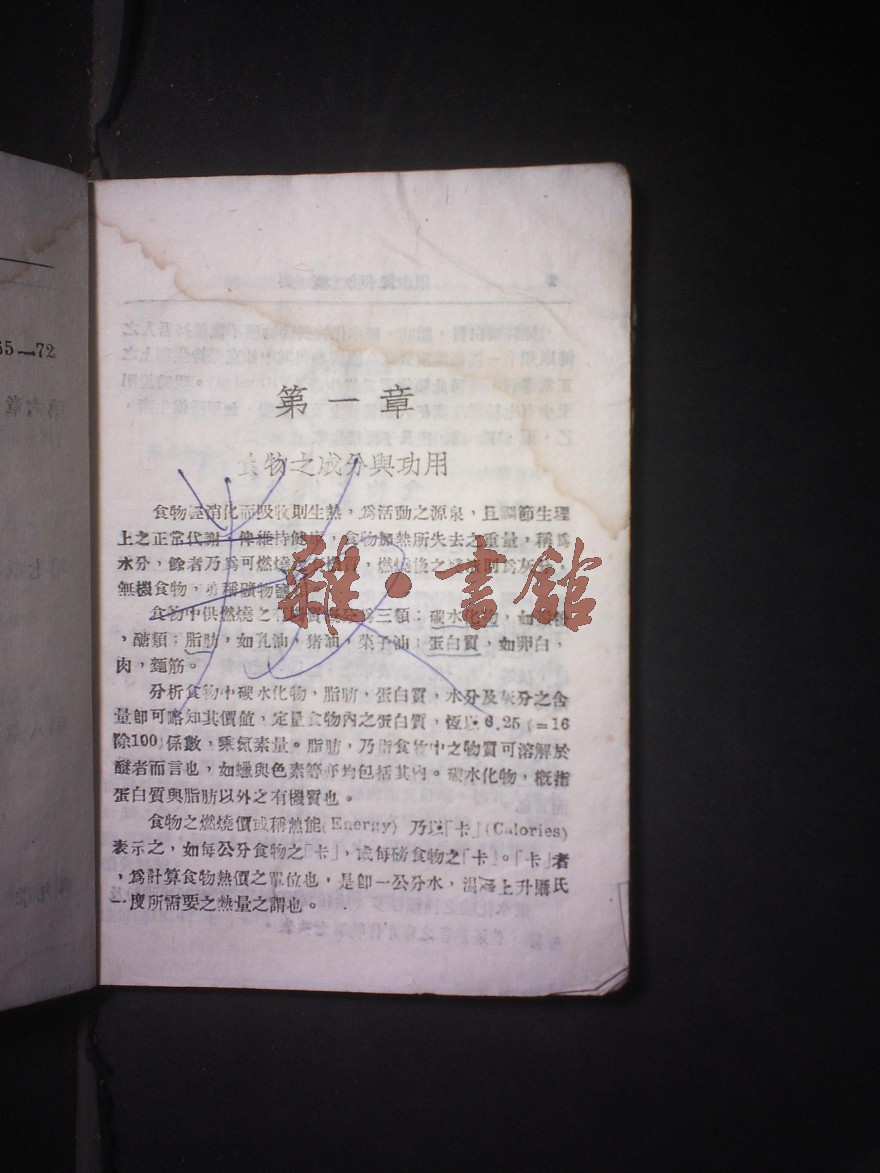 65—72
第一章
食物之成分與功用
食物經消化而吸收則生熱,爲活動之源泉,且調節生理
上之正常代謝,俾維持健康,食物加熱所失去之重量,稱爲
水分,餘者乃爲可燃燒 燃燒後之 則爲灰分,
無機食物,亦稱礦物鹽
食物中供燃燒之 三類:碳水化物,如
,醣類;脂肪,如乳油,猪油,菓子油;蛋白質,如卵白,
肉,麵筋。
分析食物中碳水化物,脂肪,蛋白質,水分及灰分之含
量卽可略知其價値,定量食物內之蛋白質,恆以6.25(=16
除100)係數,乘氮素量。脂肪,乃指食物中之物質可溶解於
醚者而言也,如蠟與色素等亦均包括其內。碳水化物,概指
蛋白質與脂肪以外之有機質也。
食物之燃燒價或稱熱能(Energy)乃以「卡」(Calories)
表示之,如每公分食物之「卡」,或每磅食物之「卡」。「卡」者
,爲計算食物熱價之單位也,是卽一公分水,溫度上升攝氏
一度所需要之熱量之謂也。
雜·書館